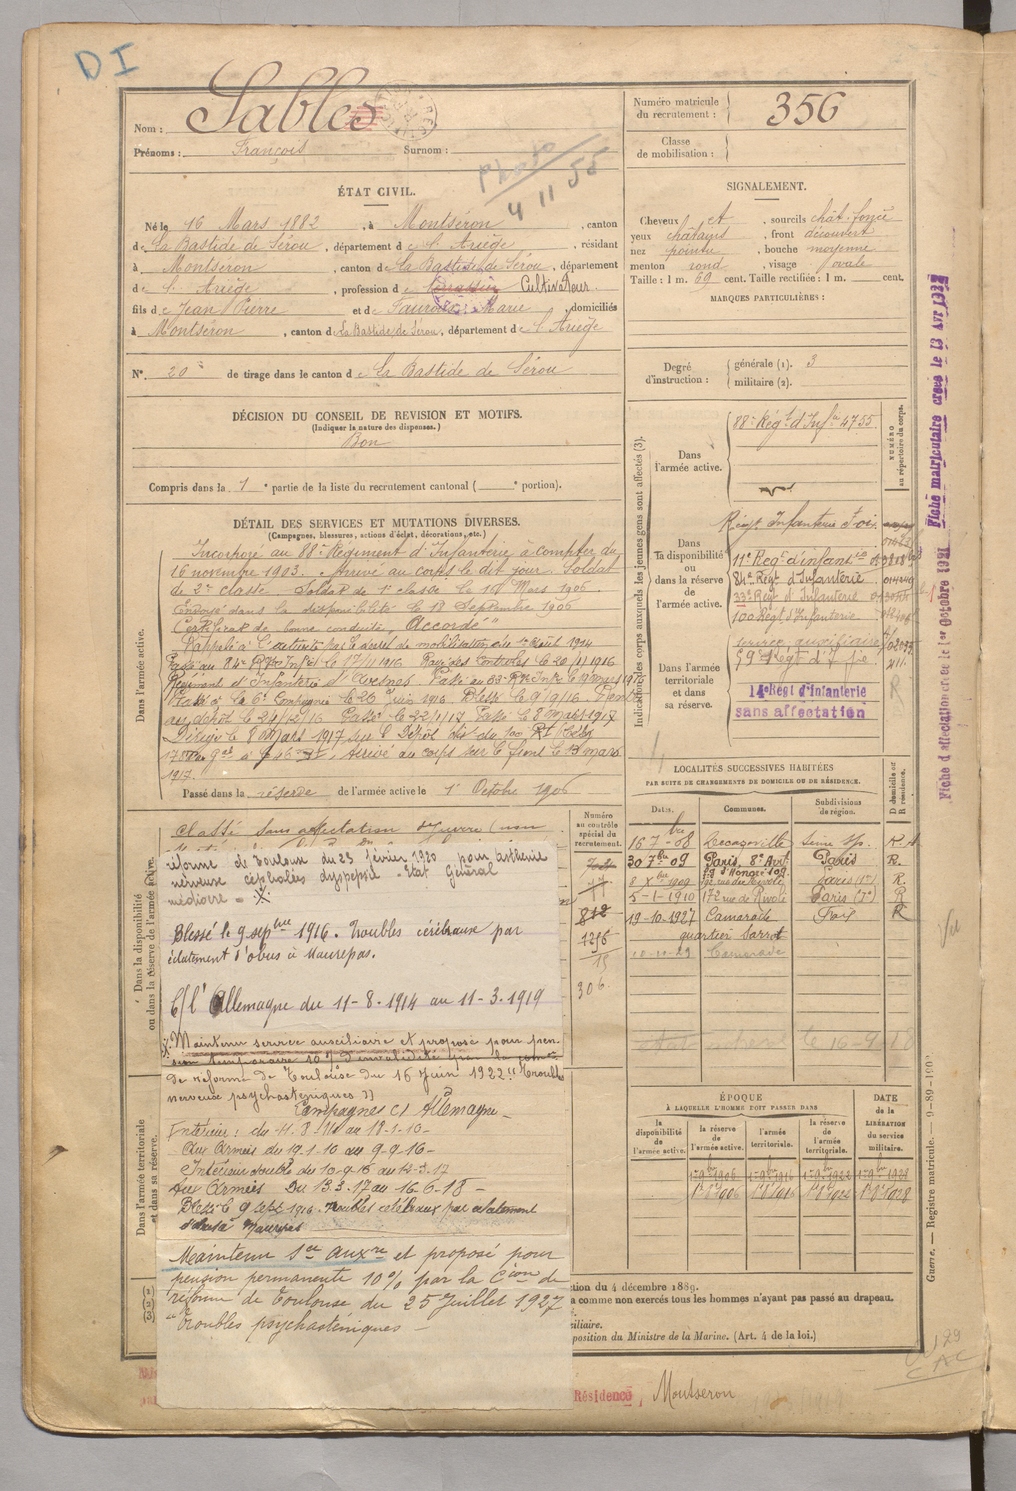 DI
Nom : Sables
Prénoms : François Surnom :
Photo
4 11 55
Numéro matricule du recrutement : 356
Classe de mobilisation :
ÉTAT CIVIL.
Né le 16 Mars 1882, à Montséron, canton
de La Bastide de Sérou, département de l'Ariège, résidant
à Montséron, canton de La Bastide de Sérou, département
de l'Ariège, profession de Cultivateur
fils de Jean Pierre et de Marie, domiciliés
à Montséron, canton de La Bastide de Sérou, département de l'Ariège
N° 20 de tirage dans le canton de La Bastide de Sérou
SIGNALEMENT.
Cheveux et, sourcils chât. foncé
yeux châtains, front découvert
nez pointu, bouche moyenne
menton rond, visage ovale
Taille : 1 m. 69 cent. Taille rectifiée : 1 m. cent.
MARQUES PARTICULIÈRES :
Degré d'instruction : générale (1). 3
militaire (2).
DÉCISION DU CONSEIL DE REVISION ET MOTIFS.
(Indiquer la nature des dispenses.)
Bon
Compris dans la 1e partie de la liste du recrutement cantonal ( e portion).
DÉTAIL DES SERVICES ET MUTATIONS DIVERSES.
(Campagnes, blessures, actions d'éclat, décorations, etc.)
Dans l'armée active.
Incorporé au 88e Régiment d'Infanterie à compter du
16 novembre 1903. Arrivé au corps le dit jour. Soldat
de 2e classe. Soldat de 1e classe le Mars 1906
Envoyé dans la disponibilité le 18 Septembre 1906
Certificat de bonne conduite "Accordé"
Rappelé à l'activité par décret de mobilisation du 1er Août 1914
Passé au 84e Rgt Infie le 17/1/1916 Rayé des Contrôles le 20/1/1916
Régiment d'Infanterie d'Avesnes. Passé au
Passé à la 6e Compagnie le 20 Juin 1916. Blessé le 9/9/16.
au dépôt le 24/12/16 Passé le 22/1/17 Passé le 8 mars 1917
Dirigé le 8 mars 1917 sur le Dépôt
Arrivé au corps sur le front le 13 mars
1917.
Passé dans la réserve de l'armée active le 1er Octobre 1906
Indication des corps auxquels les jeunes gens sont affectés (3).
NUMÉRO au répertoire du corps.
Dans l'armée active.
88e Régt d'Infie 4755
Dans la disponibilité ou dans la réserve de l'armée active.
Régt Infanterie Foix
11e Régt d'infanterie
84e Régt d'Infanterie
33e Régt d'Infanterie
100e Régt d'Infanterie
service auxiliaire
59e Régt d'Infie
Dans l'armée territoriale et dans sa réserve.
14e Régt d'Infanterie
sans affectation
Fiche d'affectation créée le 1er Octobre 1921
Fiche matriculaire créée le 13 Avr 1937
Dans la disponibilité ou dans la réserve de l'armée active.
Classé sans affectation
réforme de Toulouse du 23 février 1920 pour asthénie
nerveuse céphalées dyspepsie - Etat Général
médiocre
Blessé le 9 sepbre 1916. Troubles cérébraux par
éclatement d'obus à Maurepas.
C/ l'Allemagne du 11-8-1914 au 11-3-1919
Maintenu service auxiliaire et proposé pour pen-
sion temporaire 10% d'invalidité par la
de réforme de Toulouse du 16 Juin 1922 "Troubles
nerveux psychasténiques"
Campagnes C/ Allemagne
Dans l'armée territoriale et dans sa réserve.
Intérieur : du 11-8-14 au
Aux Armées du 19-1-16 au 9-9-16
Intérieur du 10-9-16 au 12-3-17
Aux Armées Du 13.3.17 au 16-6-18
Blessé 9 sept 1916. Troubles cérébraux par éclatement
d'obus à Maurepas
Maintenu Sce auxre et proposé pour
pension permanente 10% par la Cion de
réforme de Toulouse du 25 Juillet 1927
"Troubles psychasténiques
Numéro au contrôle spécial du recrutement.
812
1216
15
306
LOCALITÉS SUCCESSIVES HABITÉES
PAR SUITE DE CHANGEMENTS DE DOMICILE OU DE RÉSIDENCE.
Dates. Communes. Subdivisions de région. D domicile ou R résidence.
16 7bre 08 Decazeville R
30 7bre 09 Paris, 8e Arrt Paris R.
8 Xbre 1909 rue de Rivoli Paris (1r) R
5-1-1910 172 rue de Rivoli Paris (1r) R
19-10-1927 Camarade Foix R
quartier Sarrot
Camarade
ÉPOQUE
À LAQUELLE L'HOMME DOIT PASSER DANS
la disponibilité de l'armée active. la réserve de l'armée active. l'armée territoriale. la réserve de l'armée territoriale. DATE de la LIBÉRATION du service militaire.
1r 8bre 1906 1r 8bre 1916 1r 8bre 1922 1r 8bre 1928
tion du 4 décembre 1889.
a comme non exercés tous les hommes n'ayant pas passé au drapeau.
ciliaire.
position du Ministre de la Marine. (Art. 4 de la loi.)
Guerre. — Registre matricule.
Résidence, Montseron